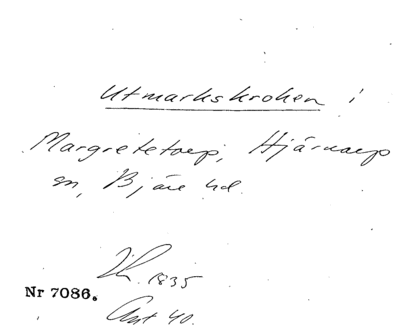 Utmarkskroken i
Margretetorp, Hjärnarp
sn, Bjäre hd.
1835
Nr 7086.
Akt 40.